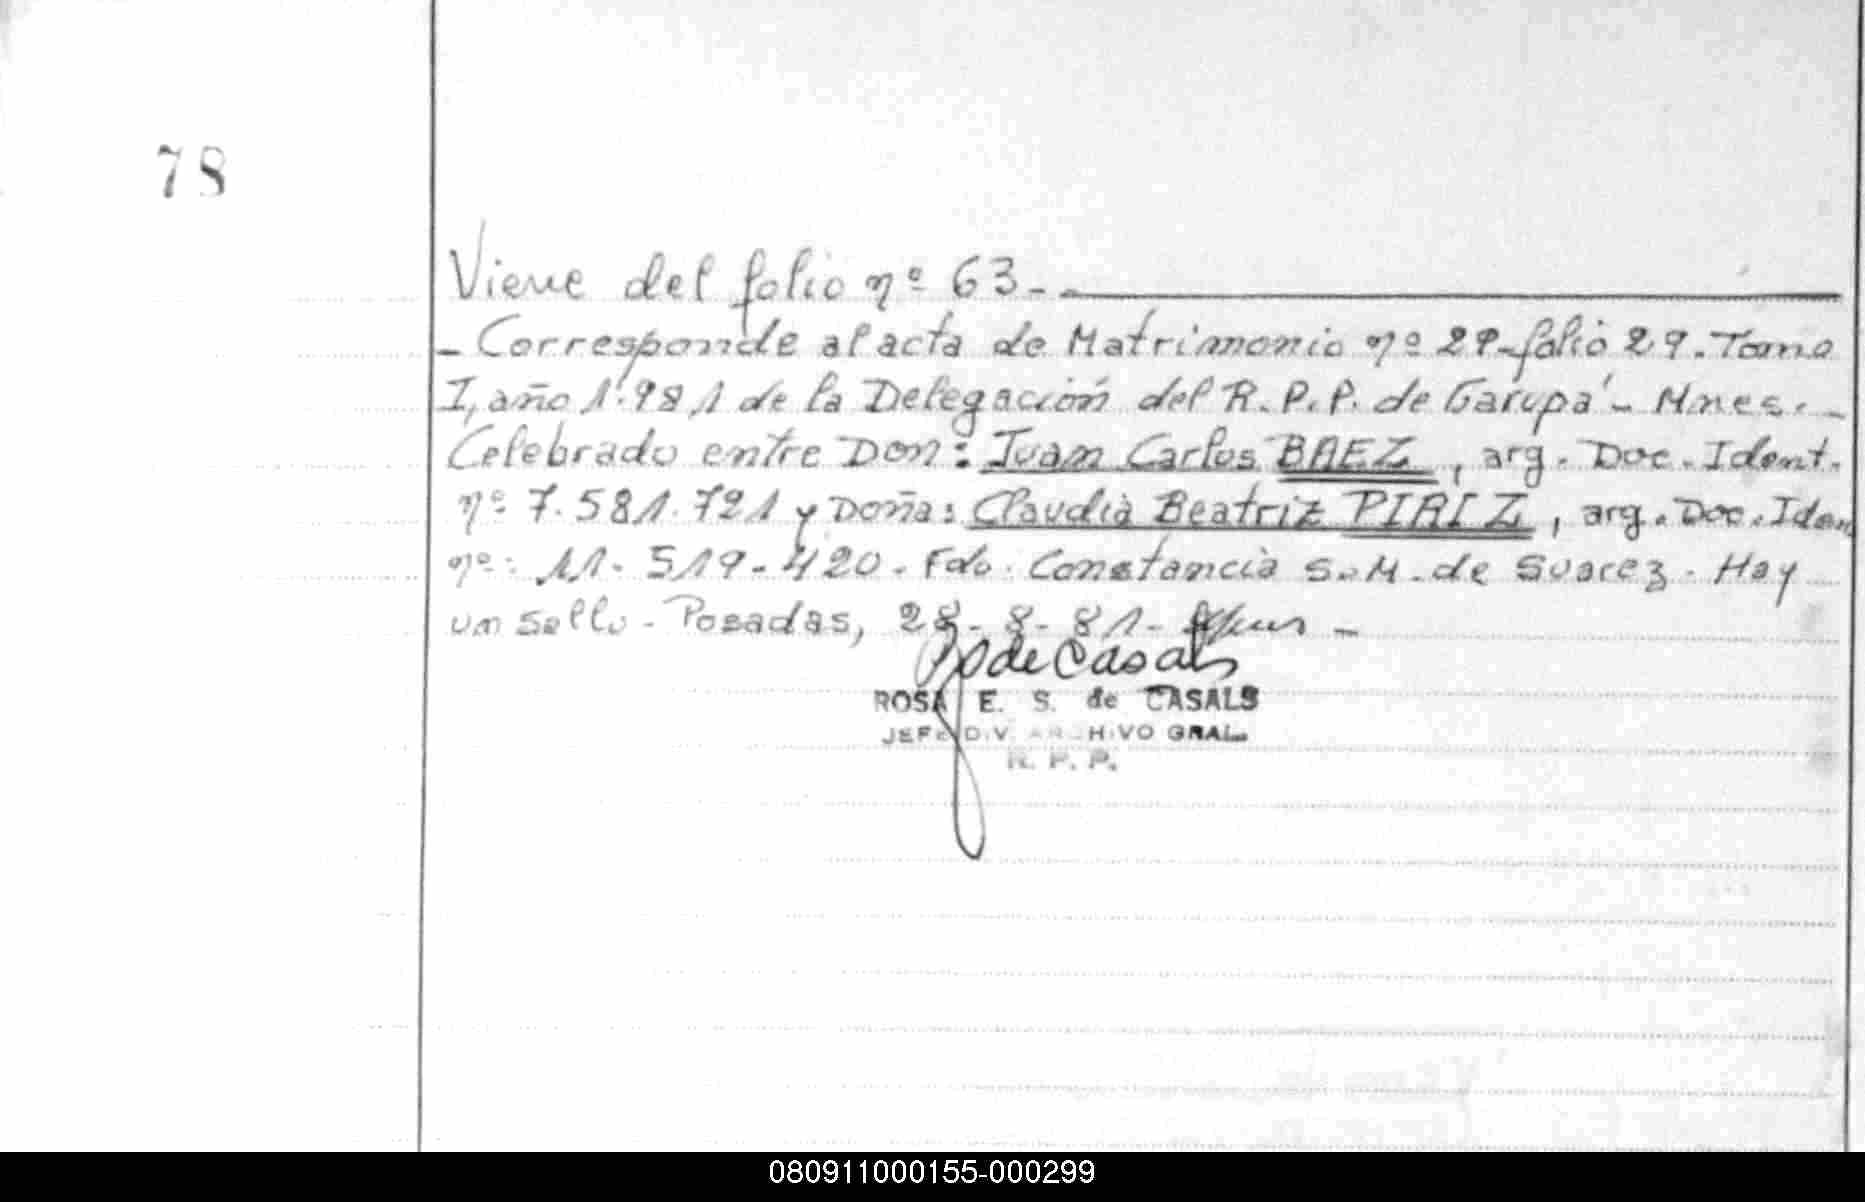 78
Viene del folio nº 63 - -
- Corresponde al acta de Matrimonio nº 29 - folio 29. Tomo
I, año 1.981 de la Delegación del R.P.P. de Garupá - Mnes. -
Celebrado entre Don: Juan Carlos BAEZ, arg. Doc. Ident.
nº 7.581.721 y Doña: Claudia Beatriz PIRIZ, arg. Doc. Iden
nº: 11.519.420. Fdo. Constancia S. M. de Suarez. Hay
un sello - Posadas, 28 - 8 - 81 -
de Casals
ROSA E. S. de CASALS
JEFE DIV. ARCHIVO GRAL.
R. P. P.
080911000155-000299